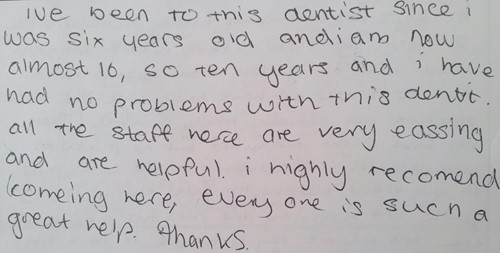 ive been to this dentist since i
was six years old andiam now
almost 16, so ten years and i have
had no problems with this dentit.
all the staff here are very eassing
and are helpful. i highly recomend
comeing here, every one is such a
great help. thanks.